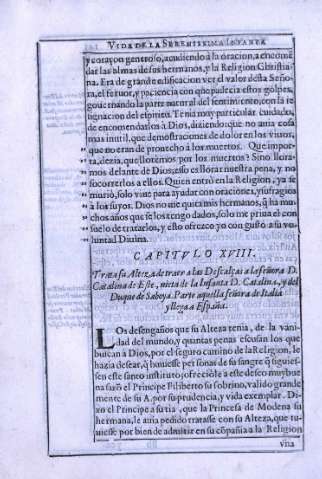 VIDA DE LA SERENISSIMA INFANTA
y coraçon generoso, acudiendo à la oracion, a encomẽ
dar las almas de sus hermanos, y la Religion Christia-
na. Era de grande edificacion ver el valor desta Seño-
ra, el feruor, y paciencia con que padecia estos golpes,
gouernando la parte natural del sentimiento, con la re
signacion del espiritu. Tenia muy particular cuidado,
de encomendarlos à Dios, diziendo, que no auia cosa
mas inutil, que demostraciones de dolor en los viuos,
que no eran de prouecho à los muertos. Que impor-
ta, dezia, que lloremos por los muertos? Sino llora-
mos delante de Dios, esso es llorar nuestra pena, y no
socorrerlos a ellos. Quien entrò en la Religion, ya se
murio, solo viue para ayudar con oraciones, y sufragios
a los suyos. Dios no me quita mis hermanos, q̃ ha mu-
chos años que se los tengo dados, solo me priua el con
suelo de tratarlos, y esto ofrezco yo con gusto a su vo
luntad Diuina.
CAPITVLO XVIII.
Trata su Alteza de traer a las Descalças a la señora D.
Catalina de Este, nieta de la Infanta D. Catalina, y del
Duque de Saboya. Parte aquella señora de Italia
y llega a España.
LOs desengaños que su Alteza tenia, de la vani-
dad del mundo, y quantas penas escusan los que
buscan a Dios, por el seguro camino de la Religion, le
hazia desear, q̃ huuiesse personas de su sangre q̃ siguies-
sen este santo instituto, ofreciòle a este desseo muy bue
na sazõ el Principe Filiberto su sobrino, valido grande
mente de su A. por su prudencia, y vida exemplar. Di-
xo el Principe a su tia, que la Princesa de Modena su
hermana, le auia pedido tratasse con su Alteza, que tu-
uiesse por bien de admitir en su cõpañia a la Religion
vna